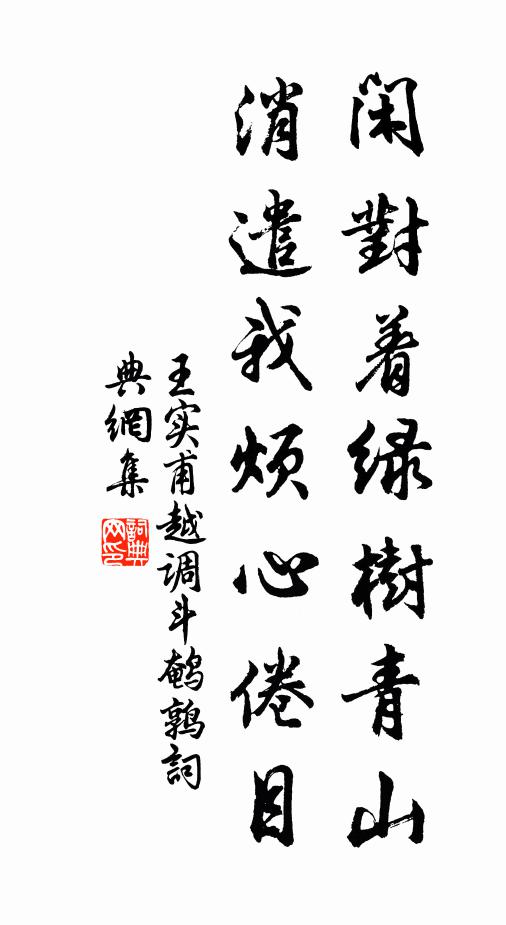 闲對着绿樹青山
消遣我烦心倦目
王实甫越调斗鹌鹑詞
典網集
詞典网印